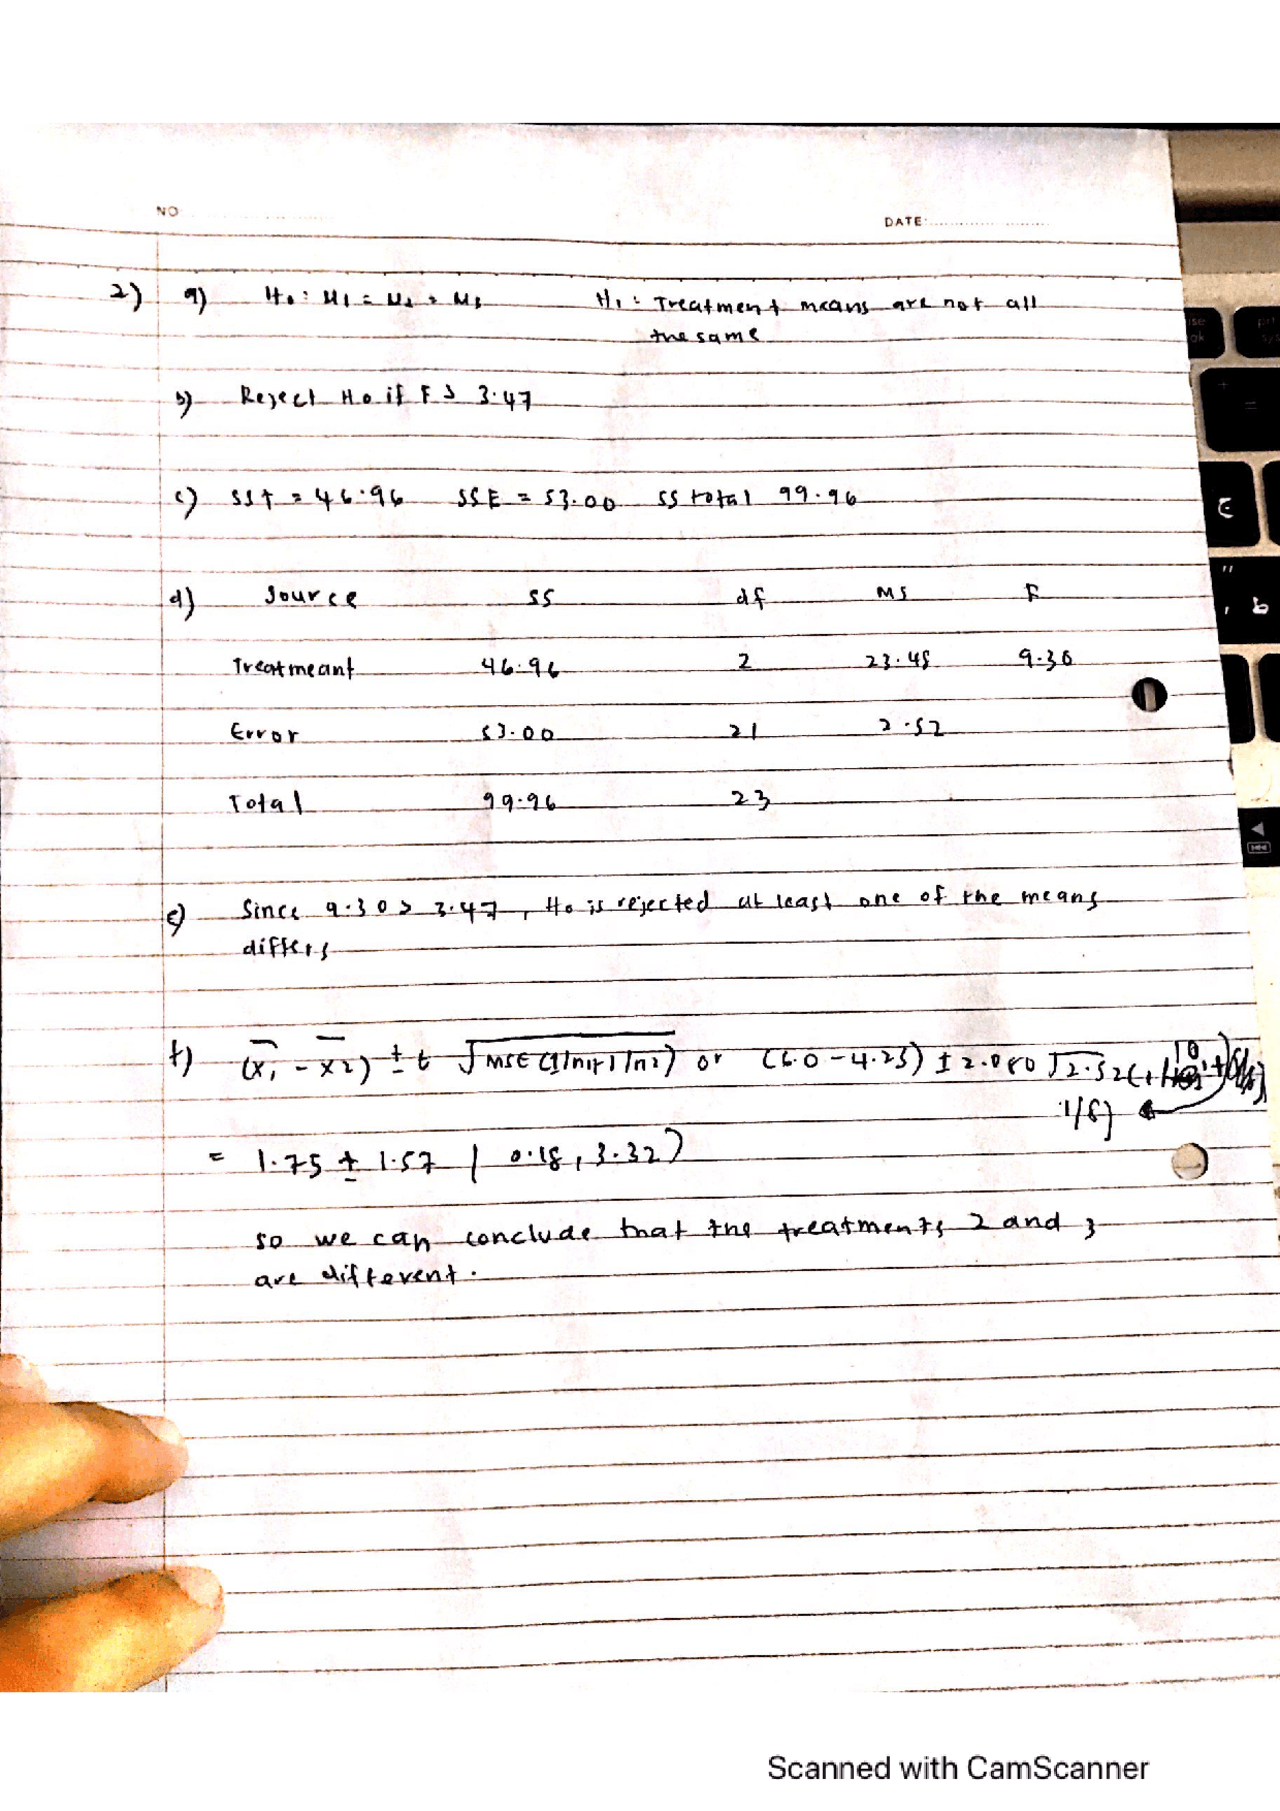 NO
DATE:
2) a) Ho: M1 = M2 = M3 H1: Treatment means are not all
the same
b) Reject Ho if F > 3.47
c) SST = 46.96 SSE = 53.00 SS total 99.96
d) Source SS df MS F
Treatmeant 46.96 2 23.48 9.30
Error 53.00 21 2.52
Total 99.96 23
e) Since 9.30 > 3.47, Ho is rejected at least one of the means
differs
f) (x̄1 - x̄2) ± t √MSE (1/n1+1/n2) or (6.0 - 4.25) ± 2.080 √2.52 (1/10 +
1/8)
= 1.75 ± 1.57 | 0.18, 3.32)
so we can conclude that the treatments 2 and 3
are different.
Scanned with CamScanner